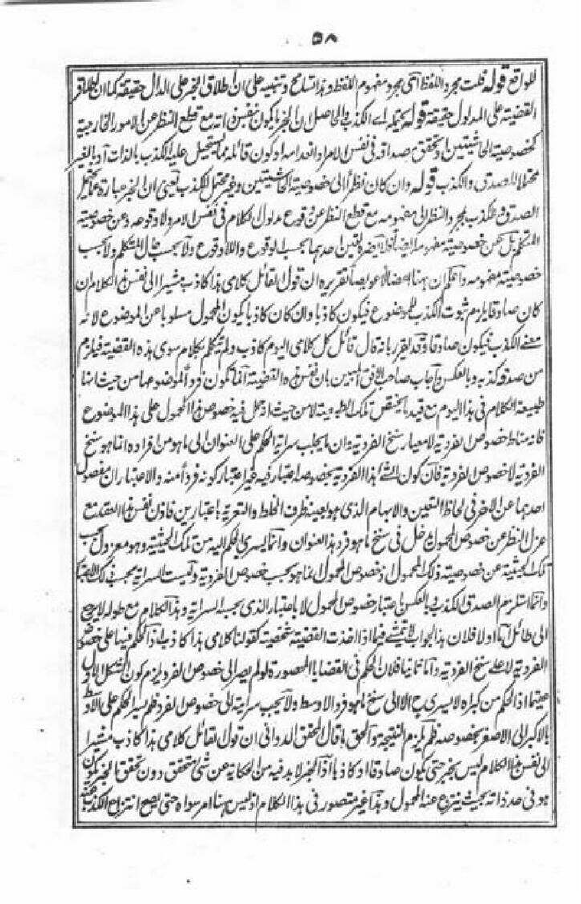 ٥٨
للواقع قوله قلت مجرد اللفظ آى مجرد مفهوم اللفظ وهذا تسامح وتنبيه على ان اطلاق الخبر على الدال حقيقة كما ان اطلاق
القضية على المدلول حقيقة قوله يحتمله اے الكذب والحاصل ان الخبر ما يكون بنفس ذاته مع قطع النظر عن الامور الخارجية
كخصوصية الحاشيتين وتحقق مصداقه فى نفس الامر او انعدامه او كون قائله مما يستحيل عليه الكذب بالذات او بالغير
محتملا للصدق والكذب قوله وان كان نظرا الى خصوصية الحاشيتين وغير محتمل للكذب يعنى ان الخبر عبارة عما يحتمل
الصدق والكذب بمجرد النظر الى مفهومه مع قطع النظر عن وقوع مدلول الكلام فى نفس الامر ولا وقوعه وعن خصوصية
المتكلم بل عن خصوصية مفهومه ايضا فلا يضره تعين احدهما بحسب الوقوع واللاوقوع ولا بحسب حال المتكلم ولا بحسب
خصوصية مفهومه واعلم ان ههنا اعضالا عويصا تقريره ان قول القائل كلامى هذا كاذب مشيرا الى نفس هذا الكلام ان
كان صادقا يلزم ثبوت الكذب للموضوع فيكون كاذبا وان كان كاذبا يكون المحمول مسلوبا عن الموضوع لانه
معنے الكذب فيكون صادقا وقد يقرر بانه قال قائل كل كلامى اليوم كاذب ولم يتكلم بكلام سوى هذه القضية فيلزم
من صدقه كذبه وبالعكس واجاب صاحب الافق المبين بان نفس هذه القضية انما تكون فردا لموضوعها من حيث انها
طبيعة الكلام فى هذا اليوم مع قيد ما يخصص تلك الطبيعية لا من حيث ادخل فيه خصوص هذا المحمول على هذا الموضوع
فانه مناط خصوص الفردية لا معيار سنخ الفردية وان ما يجب سراية الحكم على العنوان الى ما هو من افراده انما هو سنخ
الفردية لا خصوص الفردية فان كون الشئ هذا الفرد بخصوصه اعتبار فيه غير اعتبار كونه فردا منه والاعتباران مفصول
احدهما عن الآخر فى لحاظ التعين والابهام الذى هو بعينه ظرف الخلط والتعرية باعتبارين فاذن نفس هذا العقد مع
عزل النظر عن خصوص المحمول دخل فى سنخ ما هو فرد هذا العنوان وانما يسرى الحكم اليه من تلك الحيثية وهو معزول بحسب
تلك الحيثية عن خصوصية ذلك المحمول اذ خصوص المحمول انما هو بحسب خصوص الفردية وليست السراية بحسب ذلك الاعتبار
وانما استلزم الصدق الكذب وبالعكس باعتبار خصوص المحمول لا باعتبار الذى بحسبه السراية وهذا الكلام مع طوله لا يرجع
الى طائل اما اولا فلان هذا الجواب لا يتمشے فيما اذا اخذت القضية شخصية كقولنا كلامى هذا كاذب اذ الحكم فيها على خصوص
الفردية لا على سنخ الفردية واما ثانيا فلان الحكم فى القضايا المحصورة لو لم يصر الى خصوص الفرد لم يلزم كون الشكل الاول
منتجا اذ الحكم من كبراه لا يسرى ح الا الى سنخ ما هو فرد الاوسط ولا يجب سرايته الى خصوص الفرد فلم يسر الحكم على الاوسط
بالاكبر الى الاصغر بخصوصه فلم يلزم النتيجة والحق ما قال المحقق الدوانى ان قول القائل كلامى هذا كاذب مشيرا
الى نفس هذا الكلام ليس بخبر حتى يكون صادقا او كاذبا اذ الخبر لا بد فيه من الحكاية عن شئ متحقق دون تحقق الخبر يكون
هو فى حد ذاته بحيث ينتزع عنه المحمول وهذا غير متصور فى هذا الكلام اذ ليس ههنا امر سواه حتى يصح انتزاع الكذب عنه